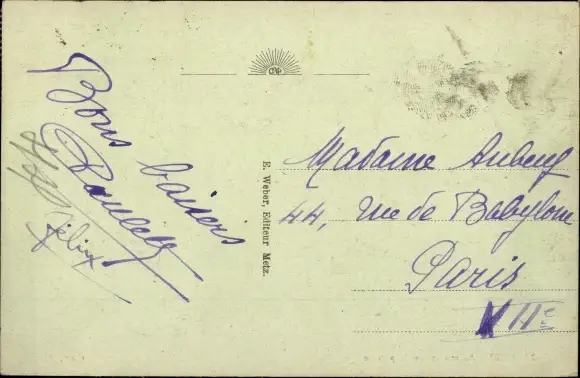 Bons baisers
Félix
E. Weber, Editeur Metz.
Madame
44, rue de Babylone
Paris
VIIe